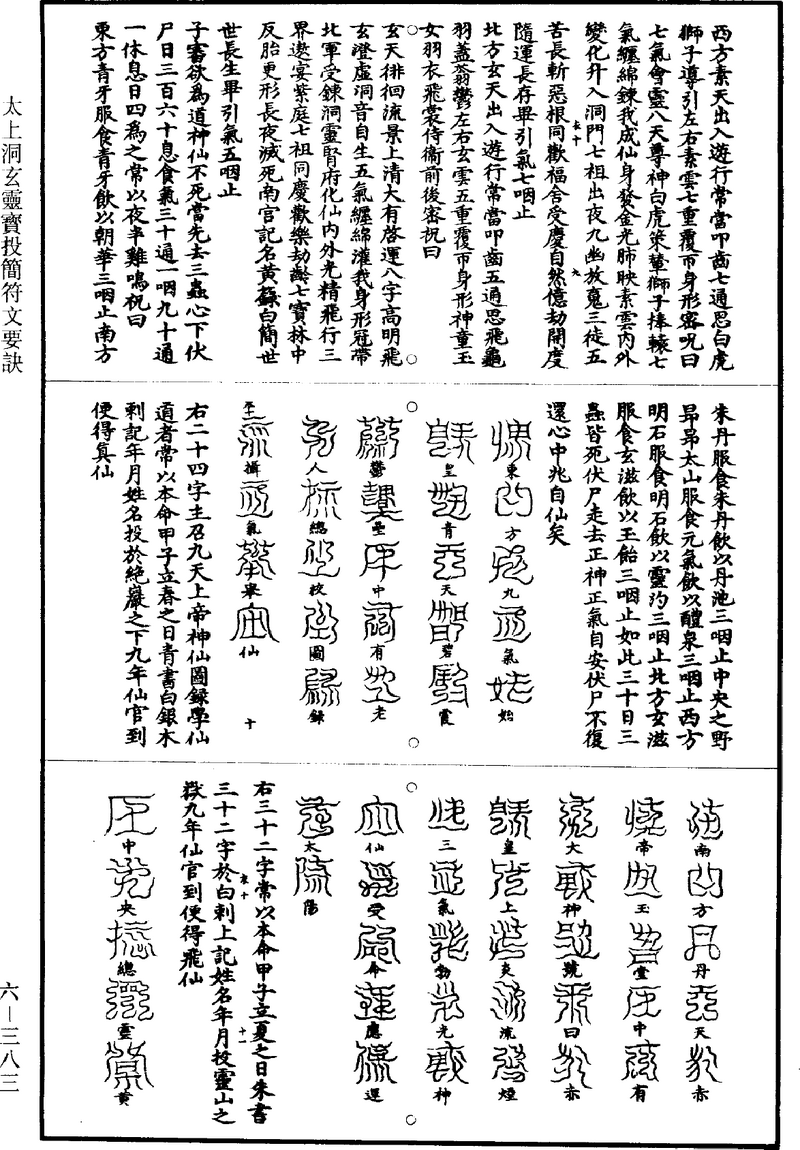 西方素天出入遊行常當叩齒七通思白虎
獅子導引左右素雲七重覆帀身形密呪曰
七氣會靈八天尊神白虎策輦獅子捧轅七
氣纏綿鍊我成仙身發金光肺映素雲內外
變化升入洞門七祖出夜九幽放魂三徒五
苦長斬惡根同歡福舍受慶自然億劫開度
隨運長存畢引氣七咽止
北方玄天出入遊行常當叩齒五通思飛龜
羽蓋蓊鬱左右玄雲五重覆帀身形神童玉
女羽衣飛裳侍衞前後密祝曰
玄天徘徊流景上清大有啓運八字高明飛
玄澄虛洞音自生五氣纏綿灌我身形冠帶
北軍受鍊洞靈腎府化仙內外光精飛行三
界遨宴紫庭七祖同慶歡樂劫齡七寶林中
反胎更形長夜滅死南宮記名黃籙白簡世
世長生畢引氣五咽止
子審欲爲道神仙不死當先去三蟲心下伏
尸日三百六十息食氣三十通一咽九十通
一休息日四爲之常以夜半雞鳴祝曰
東方青牙服食青牙飲以朝華三咽止南方
朱丹服食朱丹飲以丹池三咽止中央之野
昂昂太山服食元氣飲以醴泉三咽止西方
明石服食明石飲以靈汋三咽止北方玄滋
服食玄滋飲以玉飴三咽止如此三十日三
蟲皆死伏尸走去正神正氣自安伏尸不復
還心中兆自仙矣
東方九氣始
皇青天碧霞
鬱壘中有老
人總校圖錄
攝氣舉仙
十
右二十四字主召九天上帝神仙圖錄學仙
道者常以本命甲子立春之日青書白銀木
刺記年月姓名投於絕巖之下九年仙官到
便得眞仙
南方丹天赤
帝玉堂中有
大神號曰赤
皇上炎流煙
三氣勃光神
仙受命應運
太陽
右三十二字常以本命甲子立夏之日朱書
三十二字於白刺上記姓名年月投靈山之
嶽九年仙官到便得飛仙
中央總靈黃
太上洞玄靈寶投簡符文要訣
六—三八三